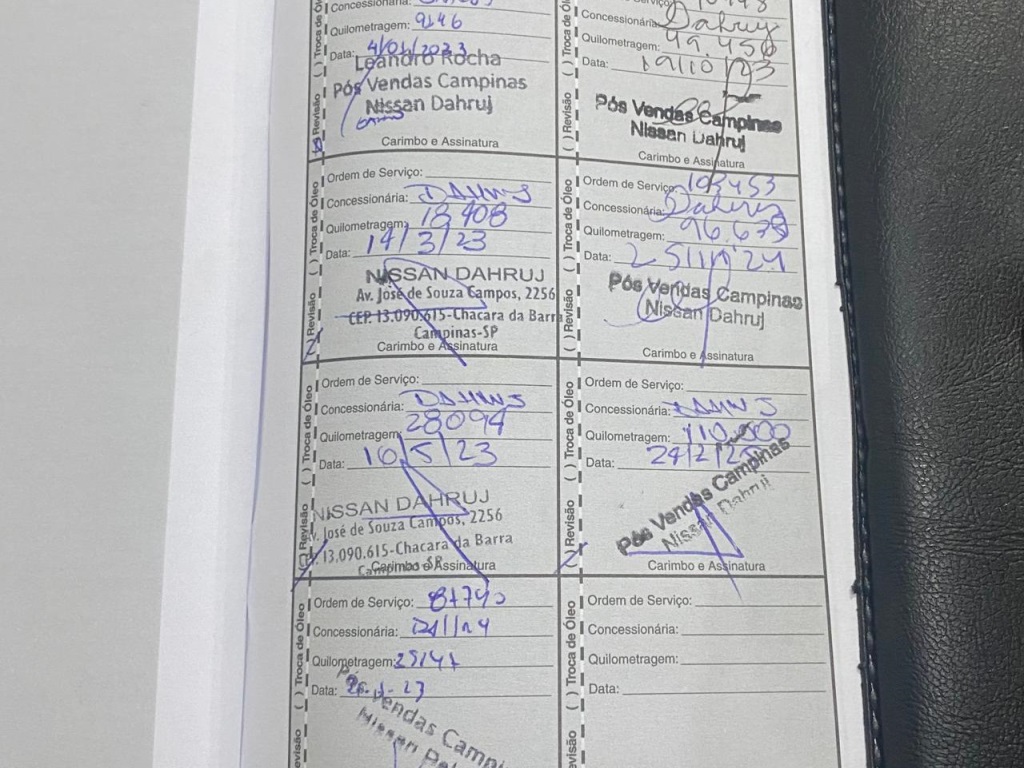 Concessionária:
Quilometragem: 9146
Data: 4/01/2023
Leandro Rocha
Pós Vendas Campinas
Nissan Dahruj
Carimbo e Assinatura
( ) Troca de Óleo
Revisão
Ordem de Serviço:
Concessionária: DAHRUJ
Quilometragem: 18408
Data: 14/3/23
NISSAN DAHRUJ
Av. José de Souza Campos, 2256
CEP. 13.090.615-Chacara da Barra
Campinas-SP
Carimbo e Assinatura
( ) Troca de Óleo
Revisão
Ordem de Serviço:
Concessionária: DAHRUJ
Quilometragem: 28094
Data: 16/5/23
NISSAN DAHRUJ
José de Souza Campos, 2256
13.090.615-Chacara da Barra
Carimbo e Assinatura
( ) Troca de Óleo
( ) Revisão
Ordem de Serviço:
Concessionária:
Quilometragem:
Data:
Pós Vendas
Nissan
( ) Troca de Óleo
Revisão
Concessionária: Dahruj
Quilometragem: 49.456
Data: 19/10/23
Pós Vendas Campinas
Nissan Dahruj
Carimbo e Assinatura
( ) Troca de Óleo
( ) Revisão
Ordem de Serviço: 103453
Concessionária: Dahruj
Quilometragem: 96.635
Data:
Pós Vendas Campinas
Nissan Dahruj
Carimbo e Assinatura
( ) Troca de Óleo
( ) Revisão
Ordem de Serviço:
Concessionária: DAHRUJ
Quilometragem: 110.000
Data: 24/2/25
Pós Vendas Campinas
Nissan Dahruj
Carimbo e Assinatura
( ) Troca de Óleo
Revisão
Ordem de Serviço:
Concessionária:
Quilometragem:
Data:
( ) Troca de Óleo
Revisão